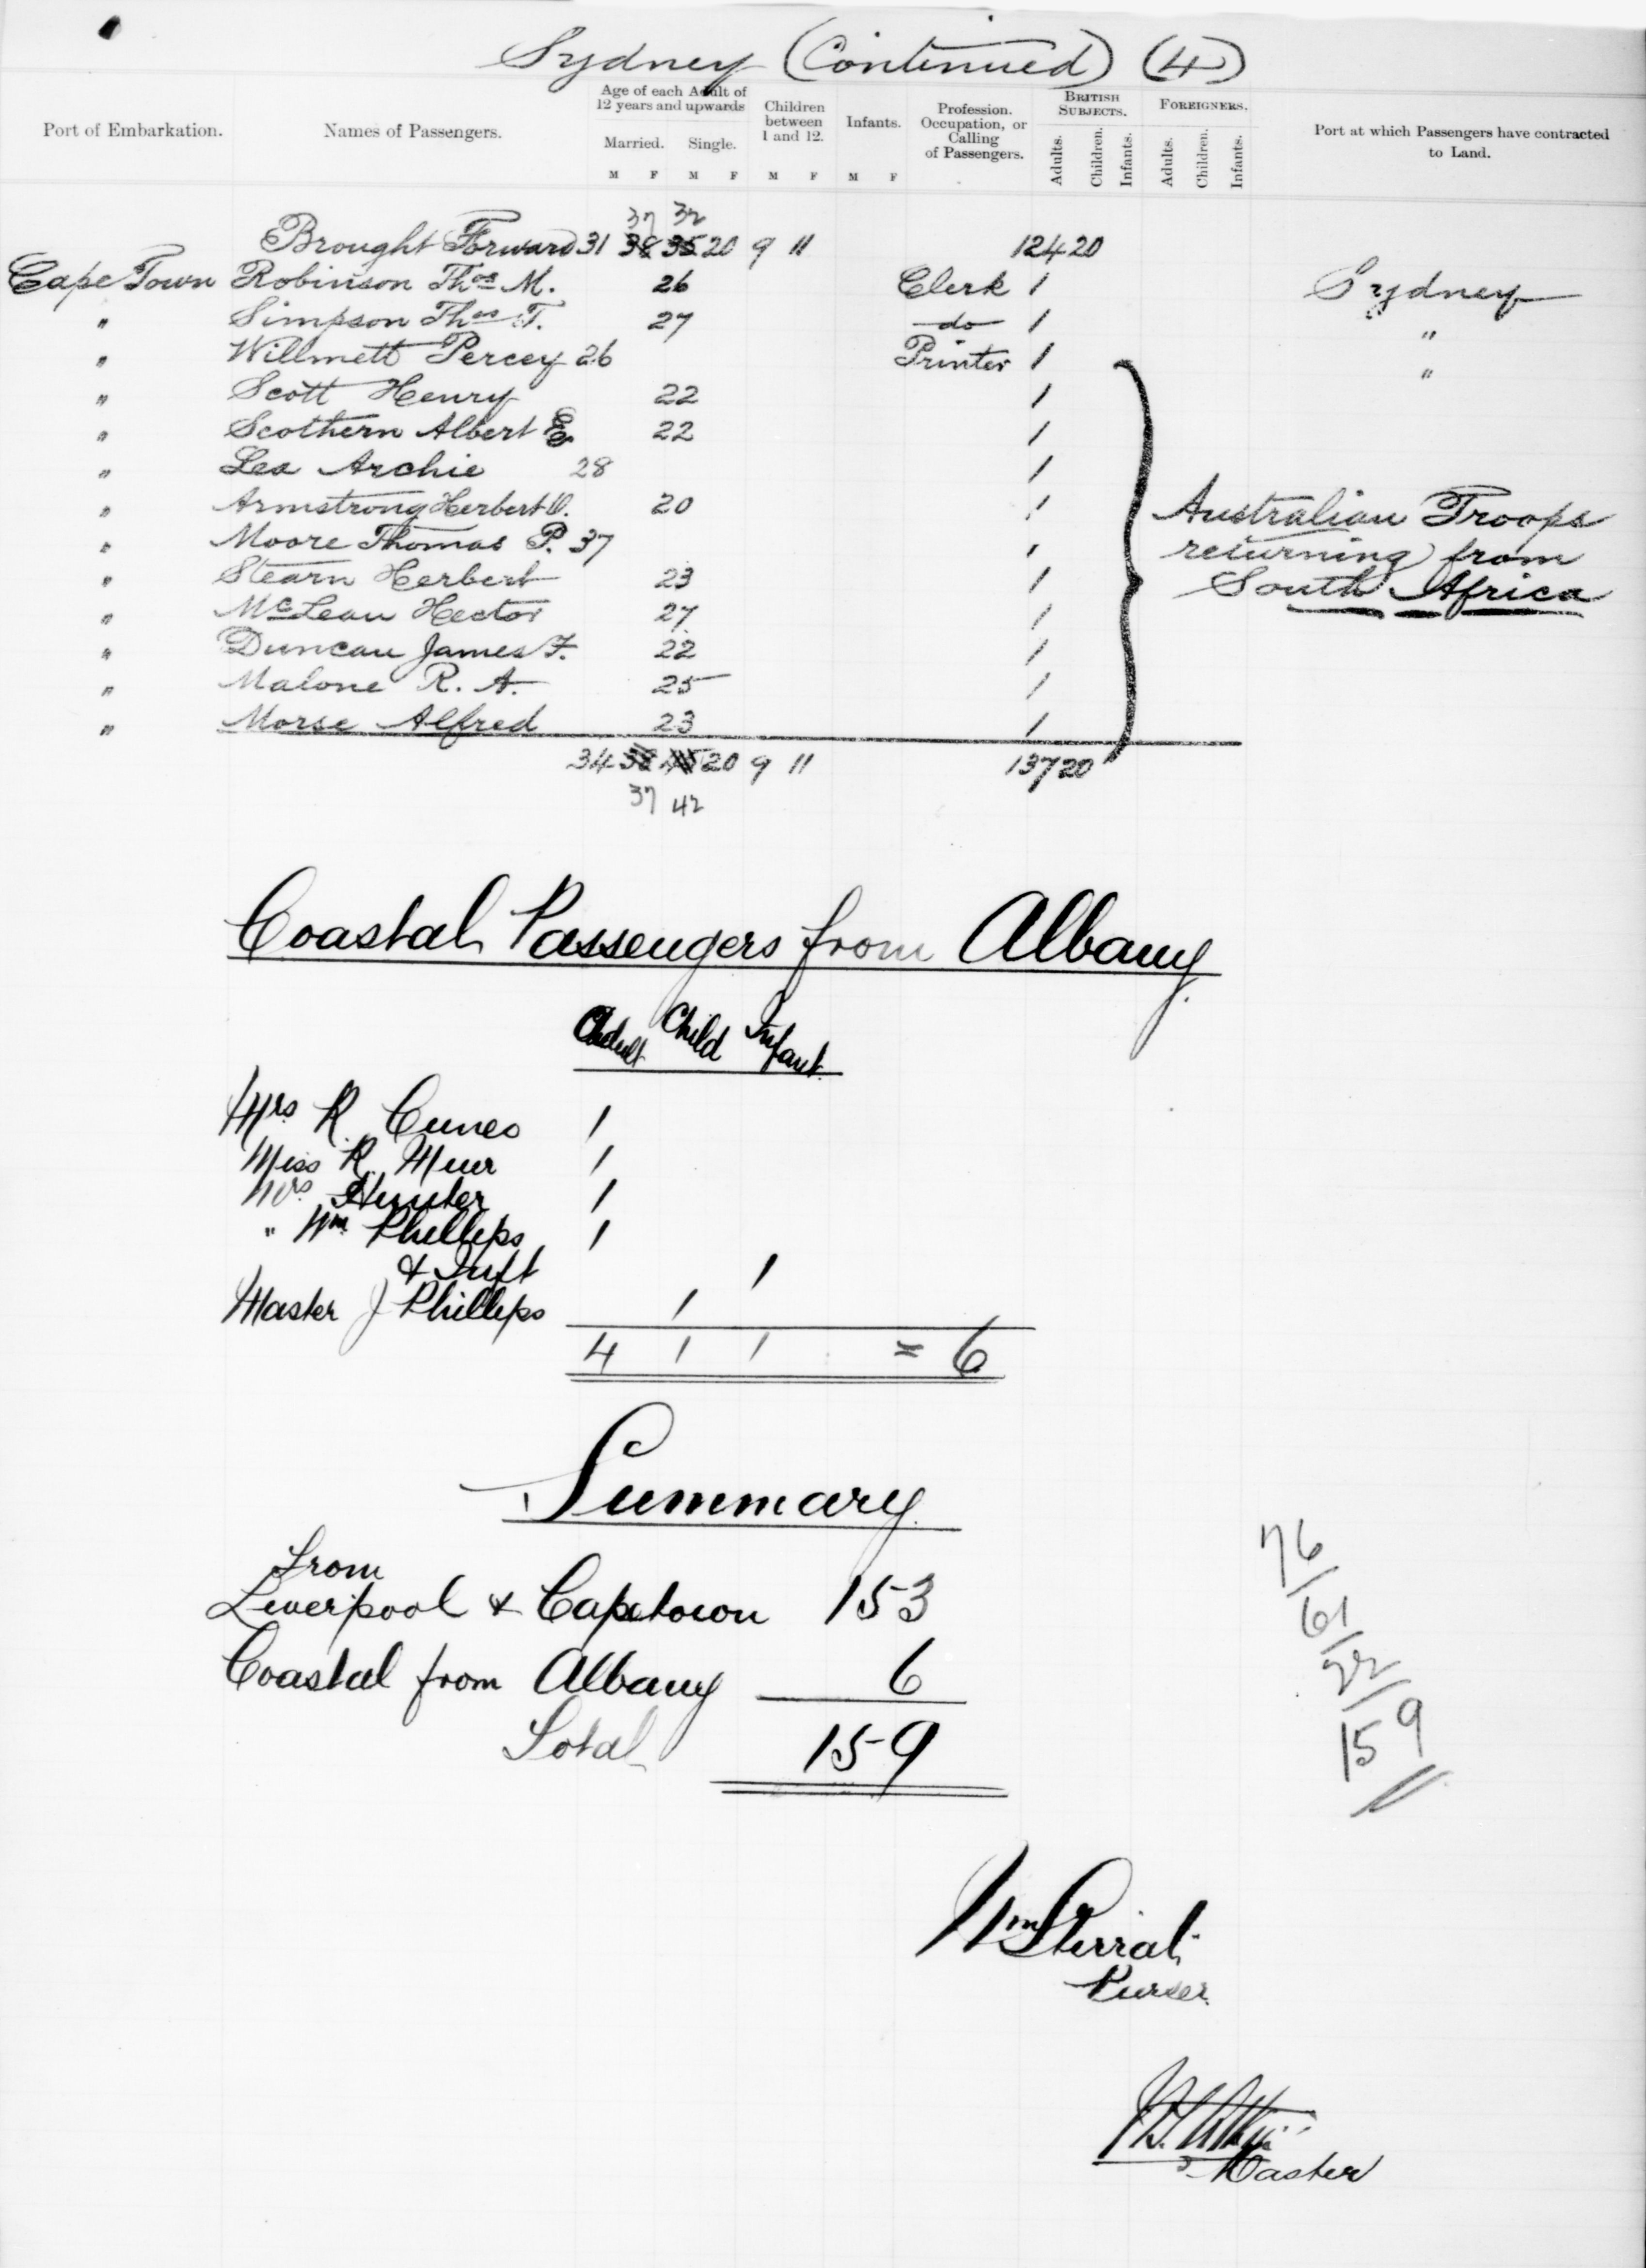 Sydney (Continued) (4)
Port of Embarkation. Names of Passengers. Age of each Adult of 12 years and upwards Married. Single. Children between 1 and 12. Infants. Profession. Occupation, or Calling of Passengers. BRITISH SUBJECTS. Adults. Children. Infants. FOREIGNERS. Adults. Children. Infants. Port at which Passengers have contracted to Land.
M F M F M F M F
37 32
Brought Forward 31 38 35 20 9 11 124 20
Cape Town Robinson Thos M. 26 Clerk 1 Sydney
" Simpson Thos T. 27 do 1 "
" Willmett Percey 26 Printer 1 "
" Scott Henry 22 1
" Scothern Albert E. 22 1
" Lea Archie 28 1
" Armstrong Herbert O. 20 1 Australian Troops
" Moore Thomas P. 37 1 returning from
" Stearn Herbert 23 1 South Africa
" McLean Hector 27 1
" Duncan James F. 22 1
" Malone R. A. 25 1
" Morse Alfred 23 1
34 38 45 20 9 11 137 20
37 42
Coastal Passengers from Albany.
Adult Child Infant.
Mrs R. Cuneo 1
Miss R. Muir 1
Mrs Hunter 1
" Wm Phillips 1
& Inft 1
Master J Phillips 1
4 1 1 = 6
Summary
From
Liverpool & Capetown 153
Coastal from Albany 6
Total 159
76/
61/
22/
159
Wm Sterrat
Purser
Master